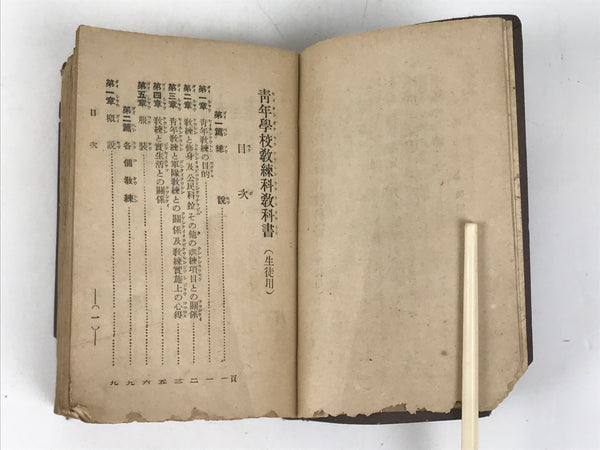 青年學校敎練科敎科書（生徒用）
目次
第一篇 總說……一頁
第一章 青年敎練の目的……一
第二章 敎練と修身及公民科並その他の訓練項目との關係……二
第三章 青年敎練と軍隊敎練との關係及敎練實施上の心得……三
第四章 敎練と實生活との關係……五
第五章 服裝……六
第二篇 各個敎練……九
第一章 概說……九
目次
―（一）―